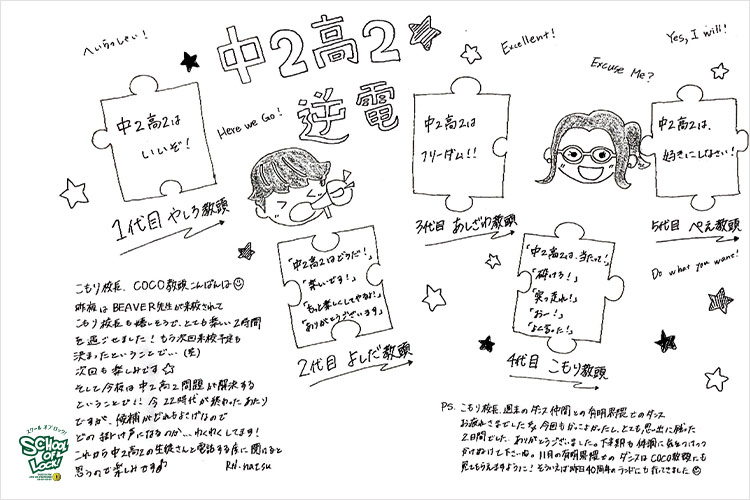 へいらっしゃい！
中2高2
逆電
Here we Go!
Excellent!
Excuse Me?
Yes, I will!
Do what you want!
中2高2は
いいぞ！
1代目 やしろ教頭
「中2高2はどうだ！」
「楽しいです！」
「もっと楽しくしてやるよ！」
「ありがとうございます」
2代目 よしだ教頭
中2高2は
フリーダム！！
3代目 あしざわ教頭
「中2高2は、当たって！」
「砕けろ！」
「突っ走れ！」
「おー！」
「よく言った！」
4代目 こもり教頭
中2高2は、
好きにしなさい！
5代目 ぺえ教頭
こもり校長、COCO教頭こんばんは
昨夜はBEAVER先生が来校されて
こもり校長も嬉しそうで、とても楽しい2時間
を過ごせました！もう次回来校予定も
決まったということでい、(笑)
次回も楽しみです
そして今夜は中2高2問題が解決する
ということで！！今22時代が終わったあたり
ですが、候補がどれもよげなので
どの掛け声になるのか…わくわくしてます！
これから中2高2の生徒さんと電話する度に聞けると
思うので楽しみです
RN.natsu
PS. こもり校長、週末のダンス仲間との有明界隈でのダンス
お疲れさまでした。今回もかっこよかったし、とても思い出に残った
2日間でした。ありがとうございました。下半期も体調に気をつけつつ
かけぬけて下さいね。11月の有明界隈でのダンスはCOCO教頭にも
見てもらえますように！そういえば昨日40周年のランドにも行ってきました
スクール オブ ロック！
SCHOOL OF LOCK!